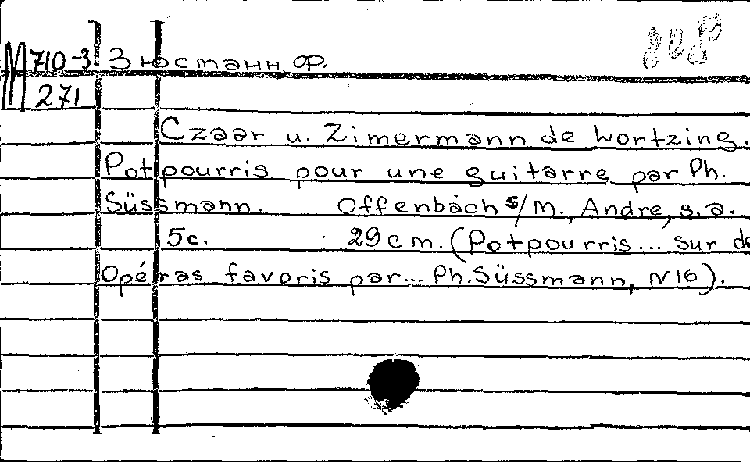 М 710-3 Зюстанн Ф.
271
Czaar u. Zimermann de Wortzing.
Potpourris pour une guitarre par Ph.
Süssmann. Offenbach s/M., Andre, s.a.
5c. 29cm. (Potpourris... sur de
Opéras favoris par... Ph. Süssmann, N16).